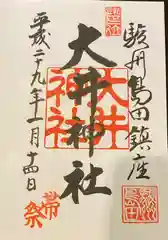 駿州島田鎮座
大井神社
平成二十九年一月十四日
帯祭
大井
神社